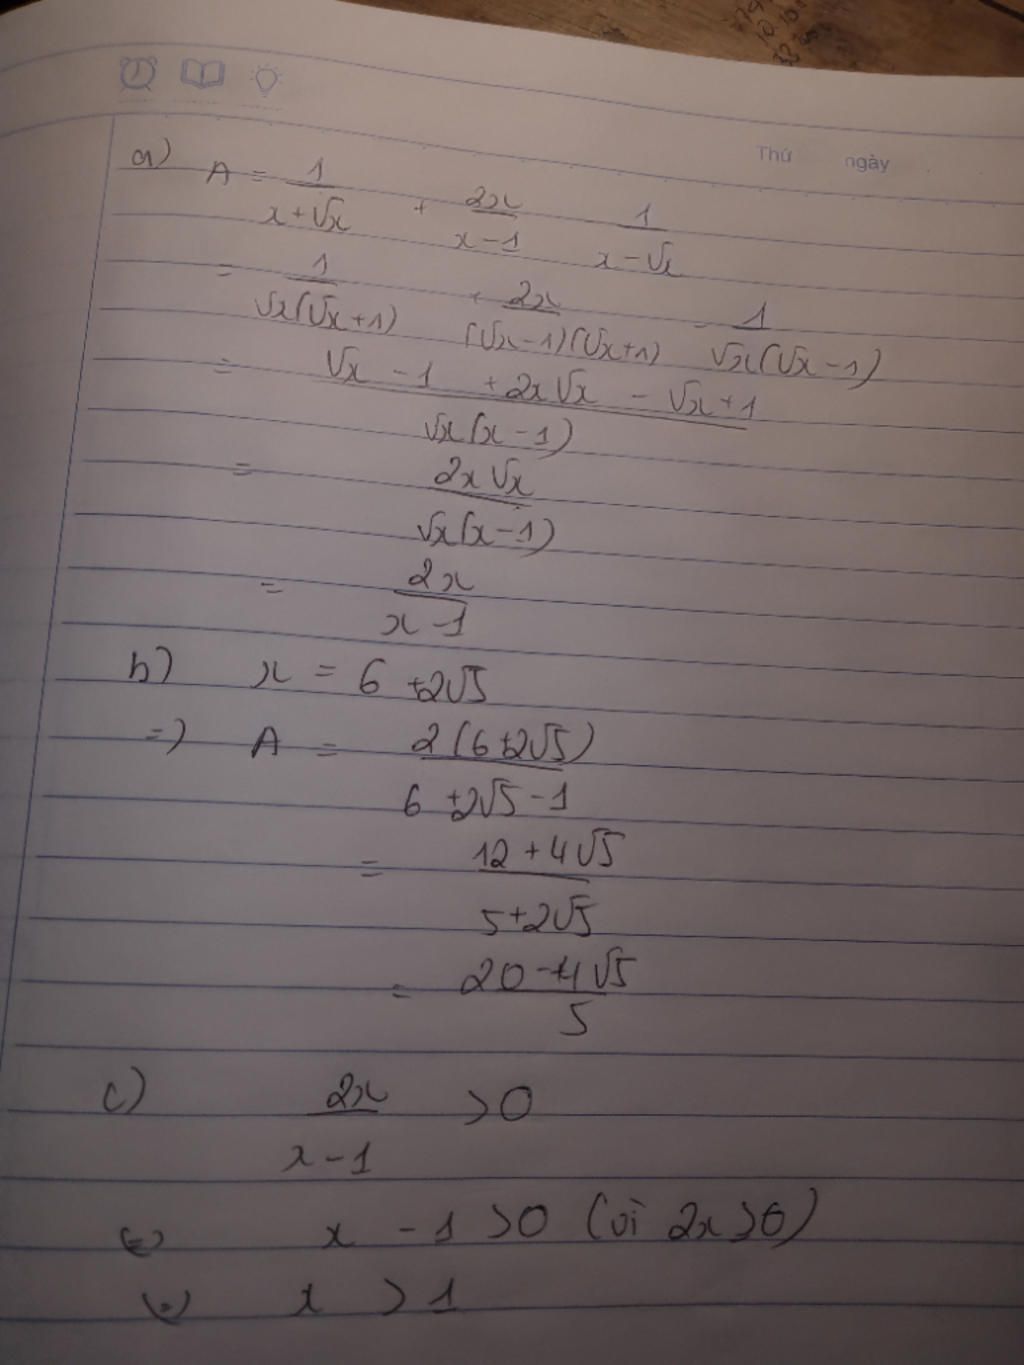 Thứ ngày
a) A = 1/(x+√x) + 2x/(x-1) 1/(x-√x)
= 1/(√x(√x+1)) + 2x/((√x-1)(√x+1)) - 1/(√x(√x-1))
= (√x - 1 + 2x√x - √x+1)/(√x(x-1))
= 2x√x/(√x(x-1))
= 2x/(x-1)
b) x = 6 +2√5
=) A = 2(6+2√5)/(6+2√5-1)
= (12+4√5)/(5+2√5)
= (20-4√5)/5
c) 2x/(x-1) >0
(=) x - 1 >0 (vì 2x>0)
(=) x > 1